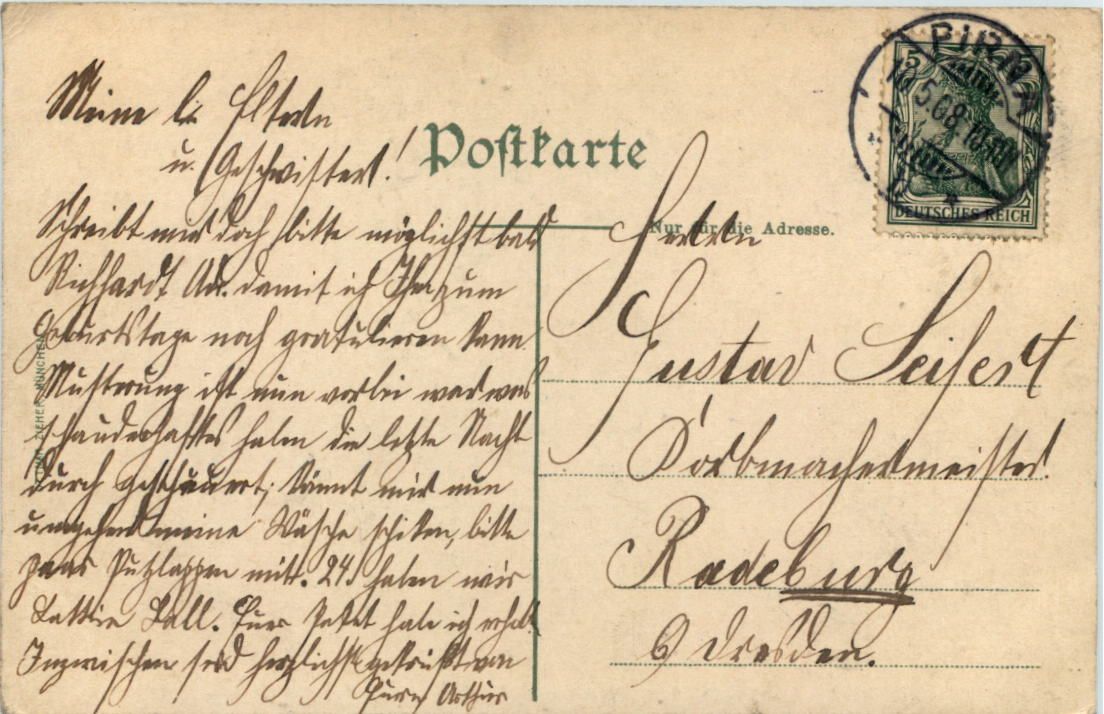 Meine l. Eltern
u. Geschwister!
Schreibt mir doch bitte möglichst bald
Richhardt Ad. damit ich Ihn zum
Geburtstage noch gratulieren kann.
Musterung ist nun vorbei war was
schauderhaftes haben die letzte Nacht
durch gescheuert, könnt mir nun
umgehend meine Wäsche schiken, bitte
paar Putzlappen mit. 24. haben wir
Ball. Euer Paket habe ich erhalt.
Inzwischen seid herzlichst gegrüßt von
Eurem Arthur
Postkarte
Nur für die Adresse.
PIRNA
5.08.
5
DEUTSCHES REICH
Herrn
Gustav Seifert
Korbmachermeister
Radeburg
b/ Dresden.
ZIEHER MÜNCHEN